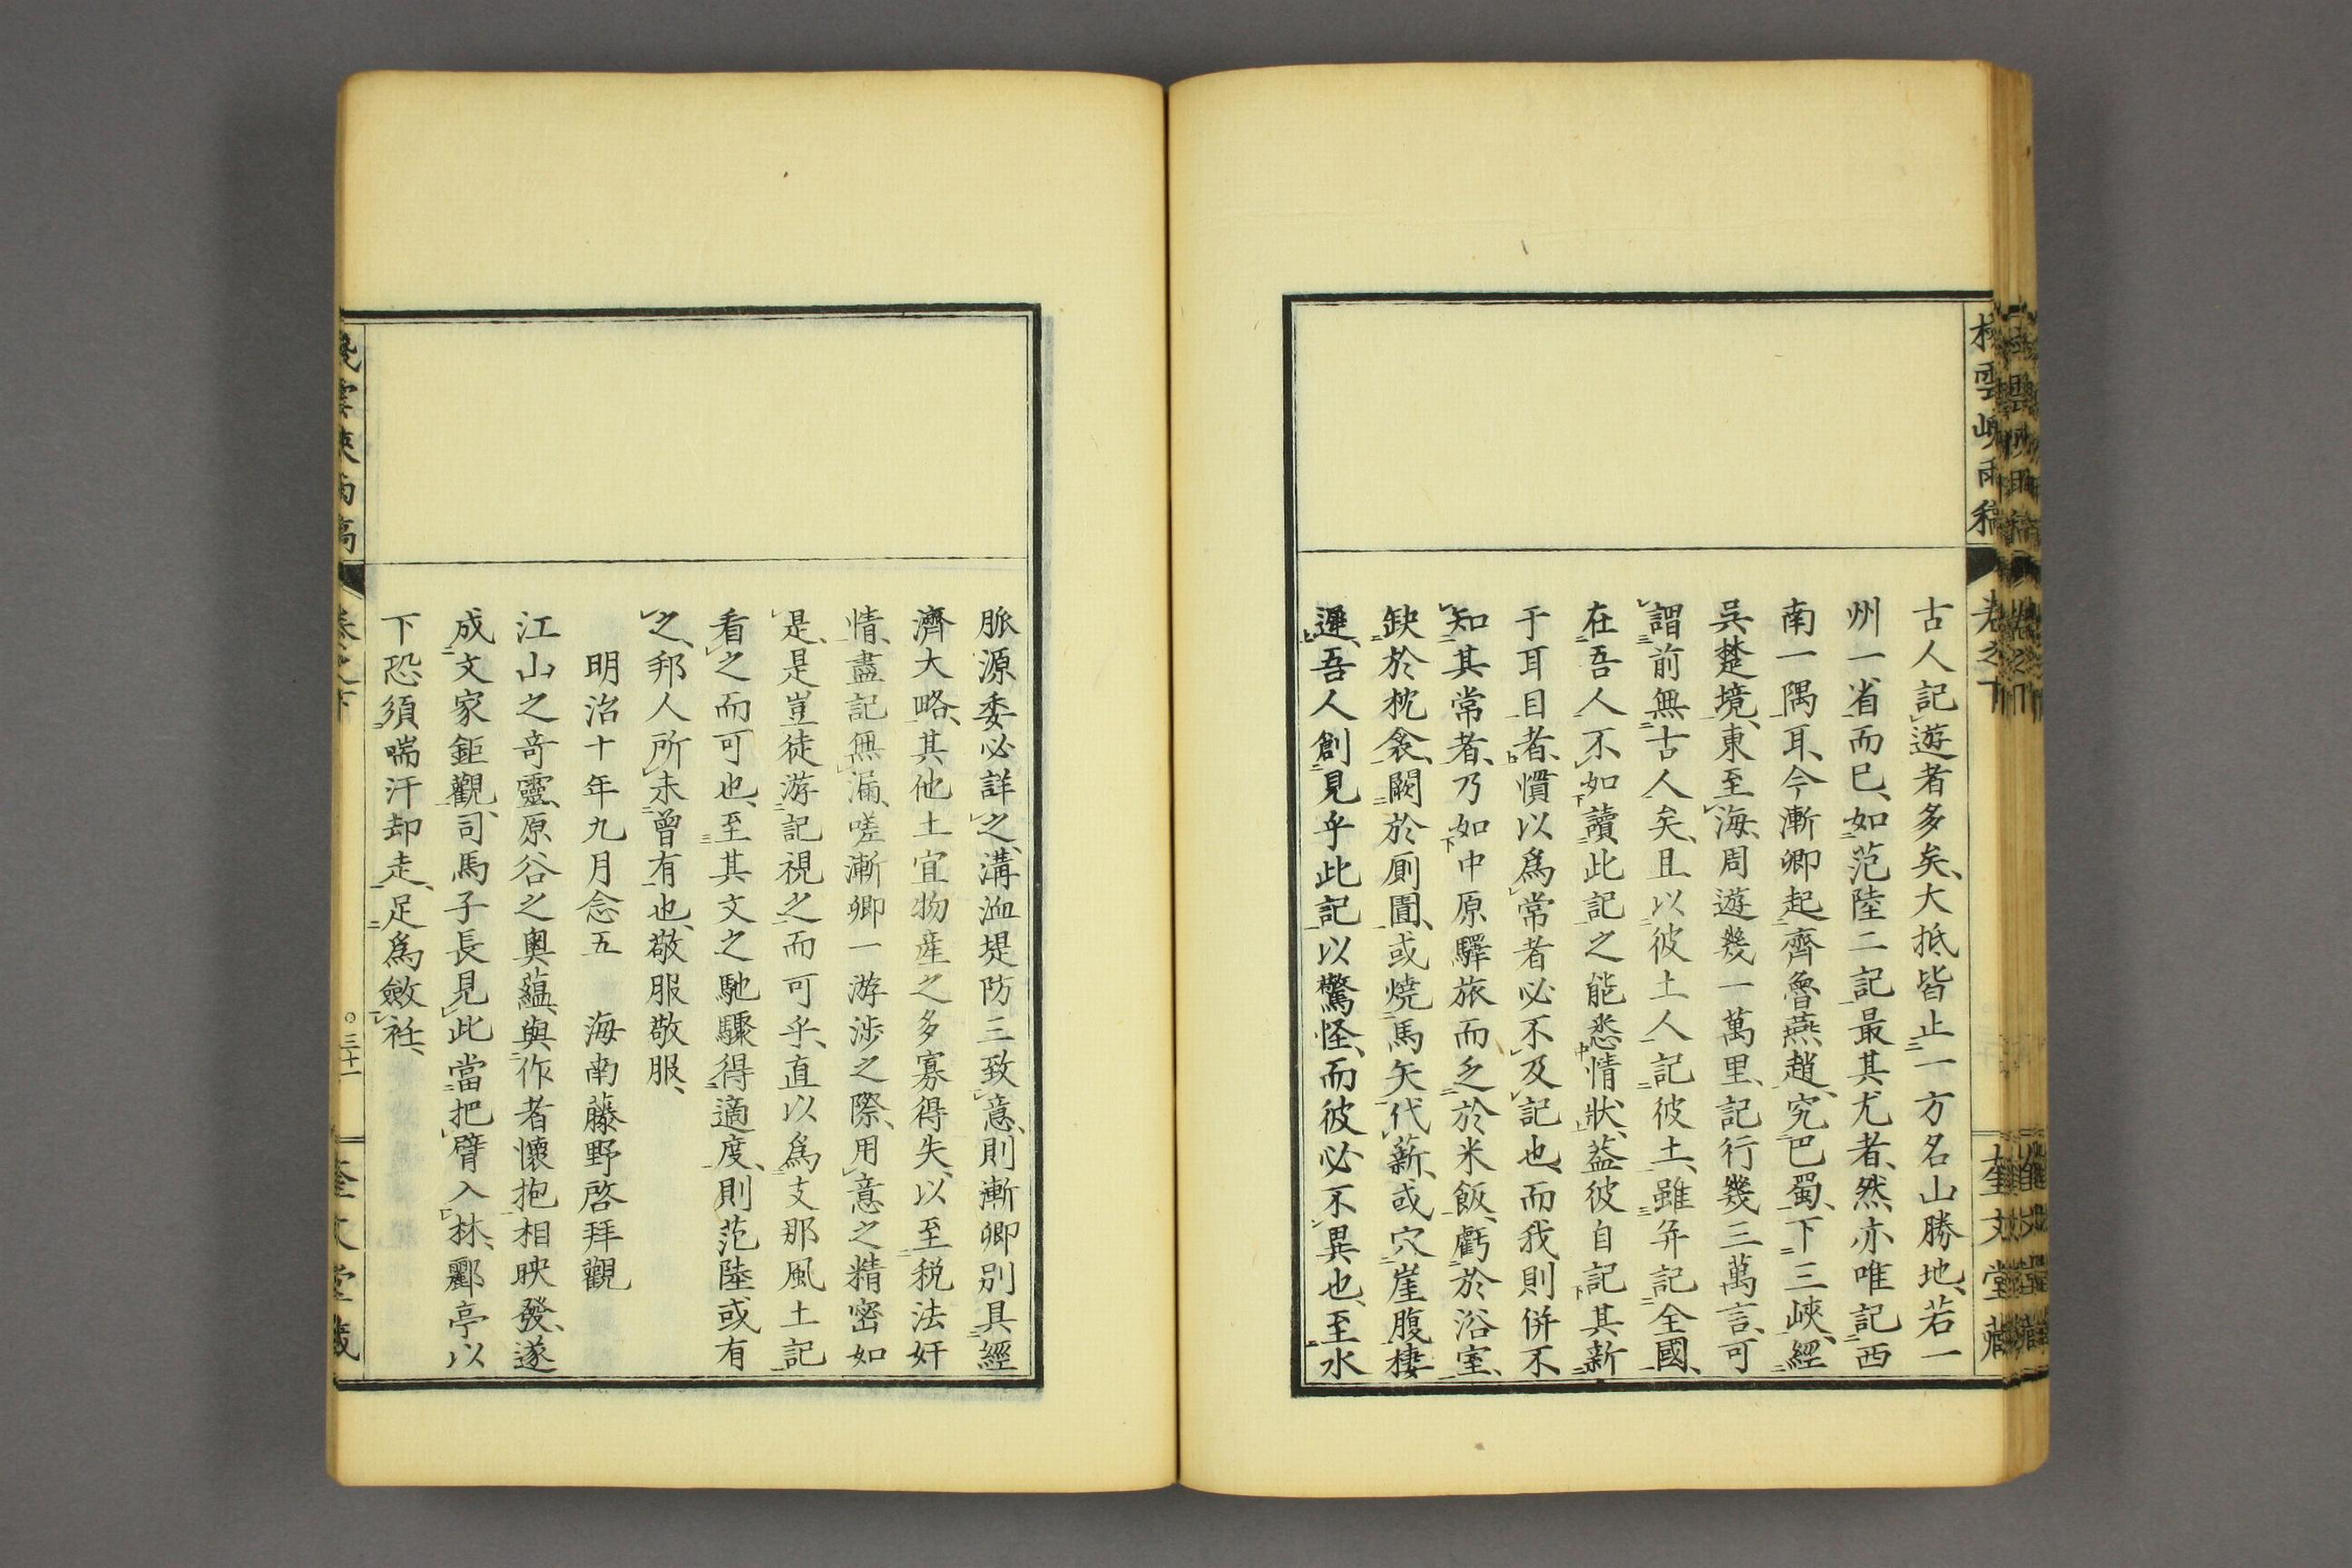 棧雲峽雨稿
卷之下
奎文堂藏
古人記遊者多矣、大抵皆止一方名山勝地、若一
州一省而已、如范陸二記最其尤者、然亦唯記西
南一隅耳、今漸卿起齊魯燕趙、究巴蜀、下三峽、經
吳楚境、東至海、周遊幾一萬里、記行幾三萬言、可
謂前無古人矣、且以彼土人記彼土、雖弁記全國、
在吾人不如讀此記之能悉情狀、葢彼自記其新
于耳目者、慣以爲常者必不及記也、而我則併不
知其常者、乃如中原驛旅而乏於米飯、虧於浴室、
缺於枕衾、闕於厠圊、或燒馬矢代薪、或穴崖腹棲
遲、吾人創見乎此記以驚怪、而彼必不異也、至水
脈源委必詳之、溝洫堤防三致意、則漸卿別具經
濟大略、其他土宜物產之多寡得失、以至税法奸
情、盡記無漏、嗟漸卿一游涉之際、用意之精密如
是、是豈徒游記視之而可乎、直以爲支那風土記
看之而可也、至其文之馳驟得適度、則范陸或有
之、邦人所未曾有也、敬服敬服、
明治十年九月念五　海南藤野啓拜觀
江山之奇靈、原谷之奧蘊、與作者懷抱相映發、遂
成文家鉅觀、司馬子長見此當把臂入林、酈亭以
下恐須喘汗却走、足爲斂衽、
棧雲峽雨稿
卷之下
○三十一
奎文堂藏